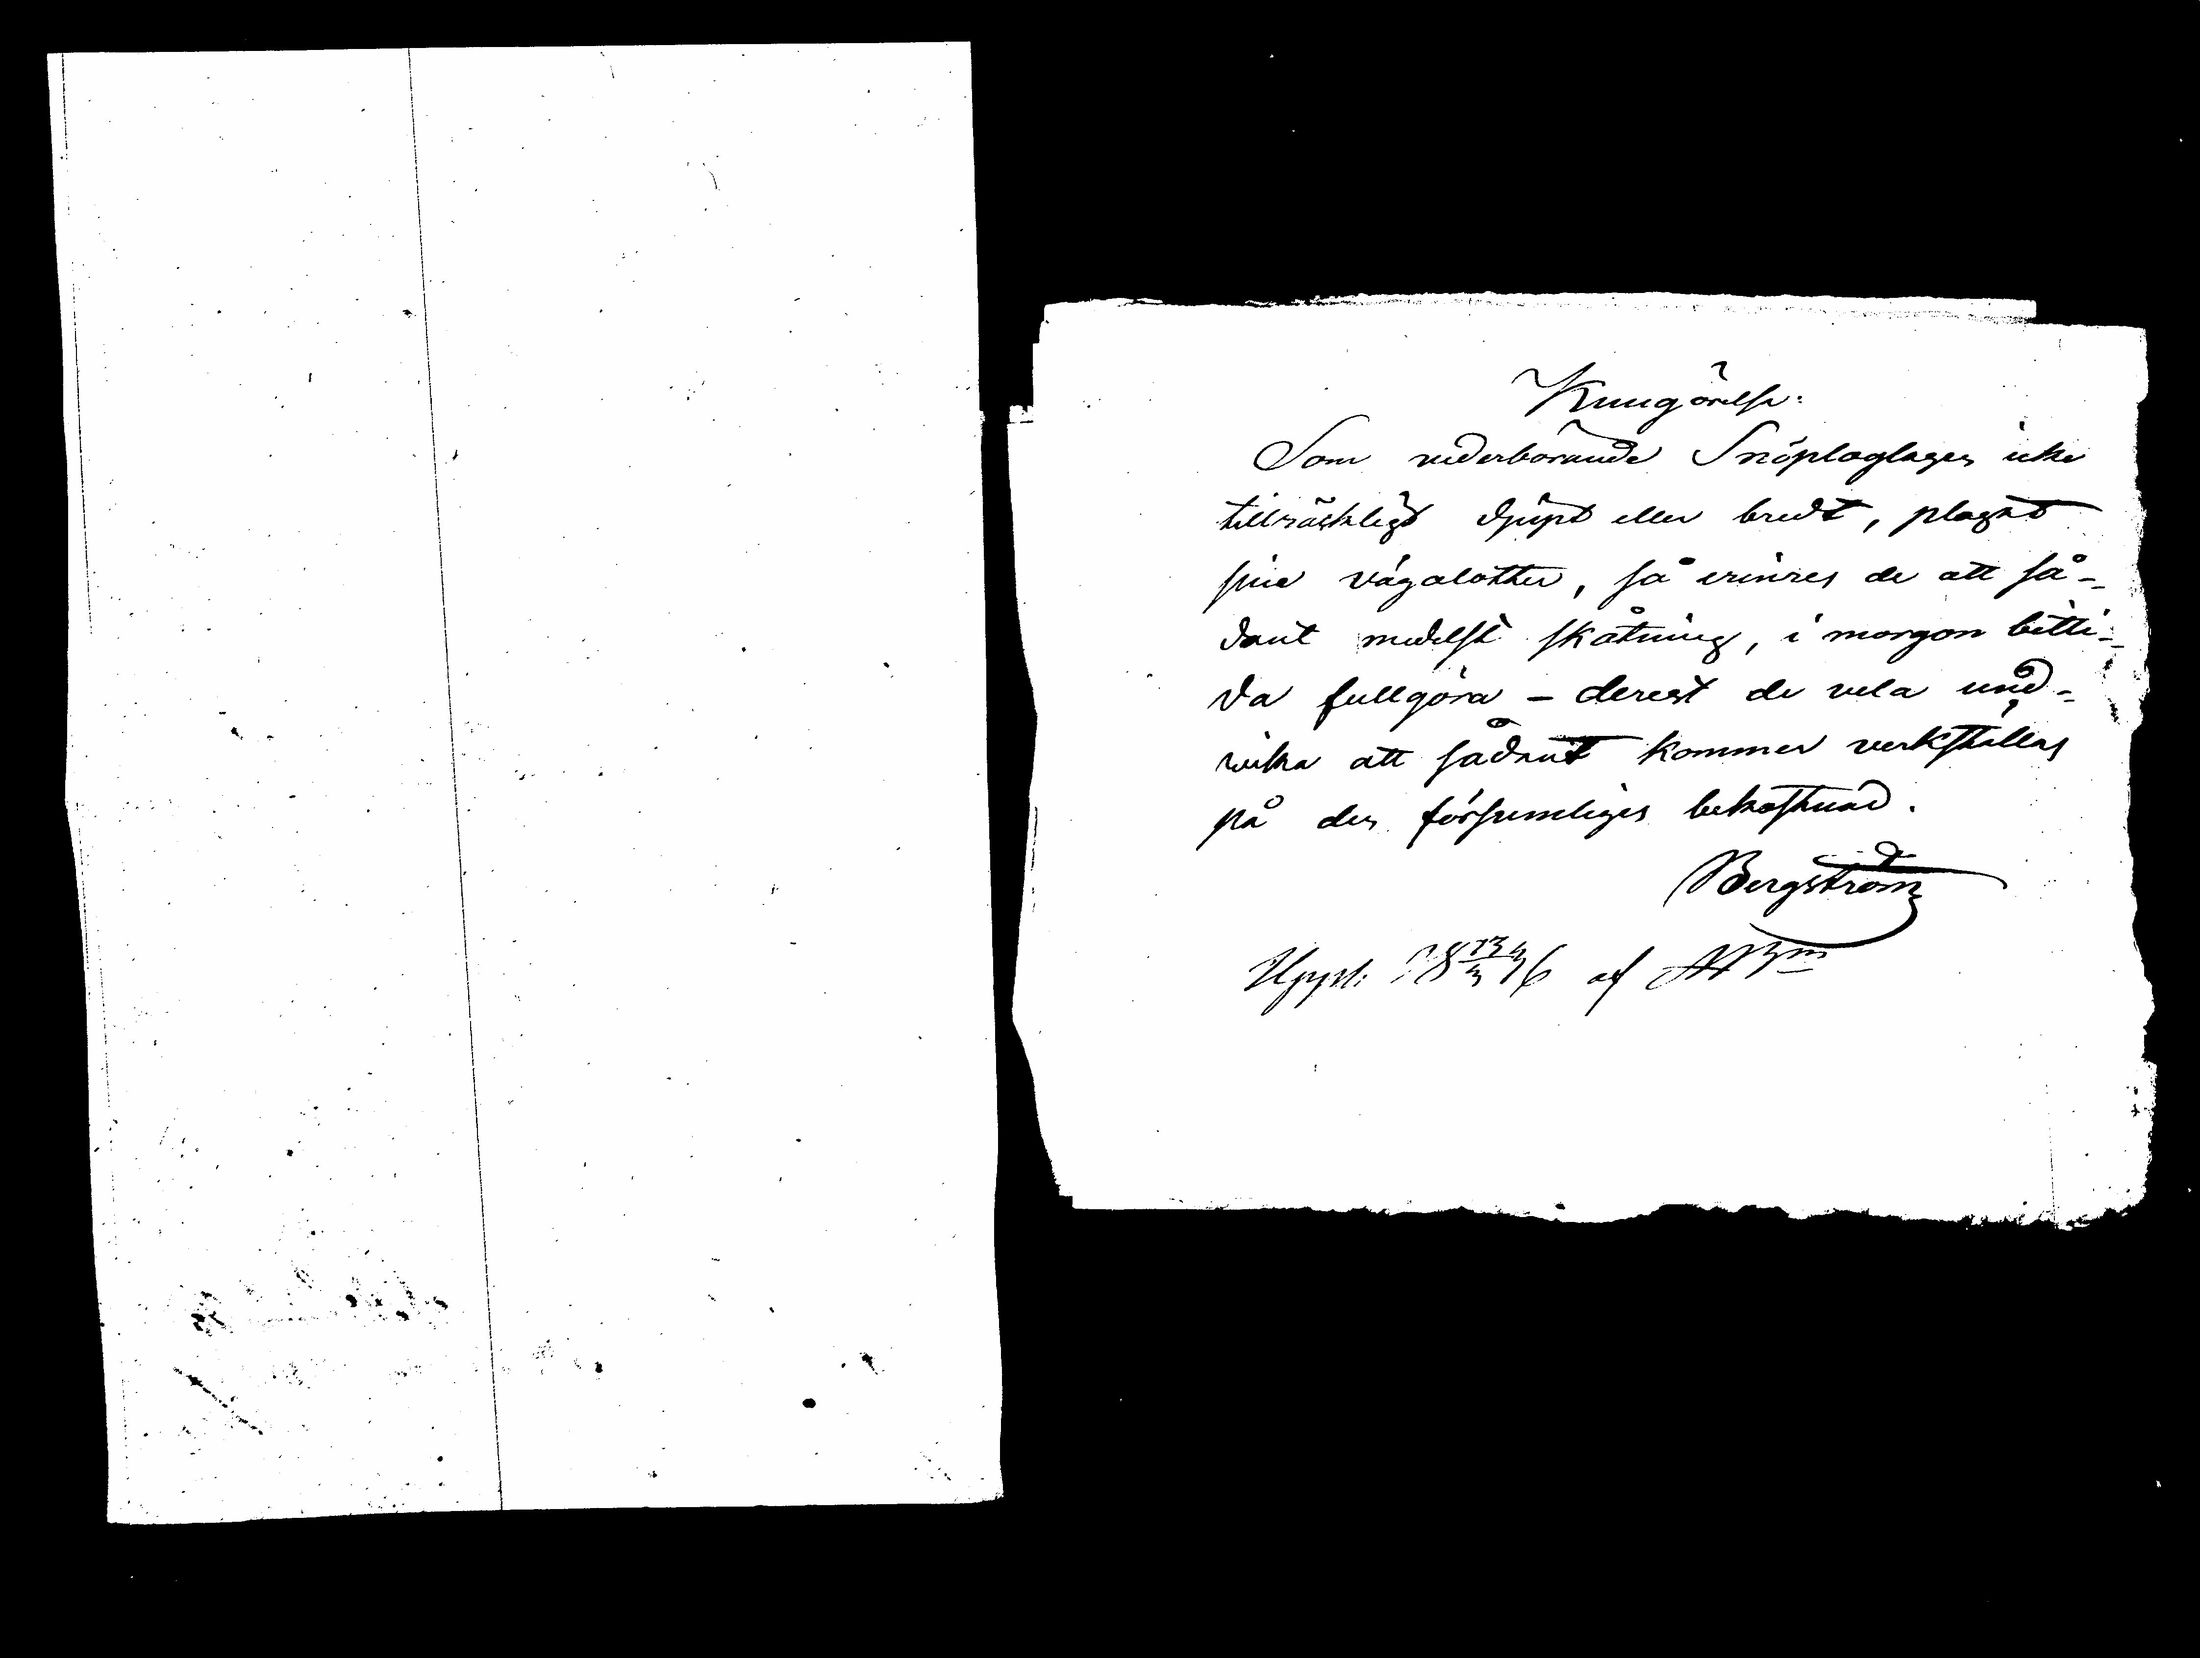 Kungörelse.
Som vederbörande Snöploglagen icke
tillräckligt djupt eller bredt, plogat
sina vägalotter, så erinres de att så-
dant medelst skåtning, i morgon bitti-
da fullgöra – derest de vela und-
wika att sådant kommer verkställas
på den försumliges bekostnad.
Bergström
Uppl: 18 13/3 46 af